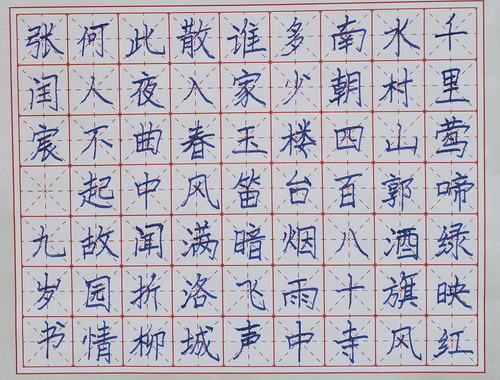 千里莺啼绿映红
水村山郭酒旗风
南朝四百八十寺
多少楼台烟雨中
谁家玉笛暗飞声
散入春风满洛城
此夜曲中闻折柳
何人不起故园情
张闰宸 九岁书